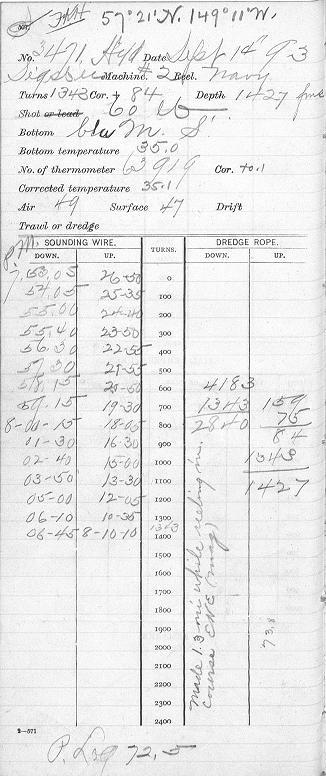 57°21' N. 149°11' W.
No. 3471 Hyd Date Sept 14" 93
Sigsbee Machine. #2 Reel. Navy
Turns 1343 Cor. + 84 Depth 1427 fms
Shot or lead 60 lb
Bottom blu M. S.
Bottom temperature 35.0
No. of thermometer 63919 Cor. +0.1
Corrected temperature 35.11
Air 49 Surface 47 Drift
Trawl or dredge
P.M. SOUNDING WIRE. TURNS. DREDGE ROPE.
DOWN. UP. DOWN. UP.
7.53.05 26-50 0
54.05 25-35 100
55.00 24-40 200
55.40 23-50 300
56.30 22-55 400
57.30 21-55 500
58.15 20-50 600 4183
59.15 19-30 700 1343 159
8-00-15 18-05 800 2840 75
01-30 16-30 900 84
02-40 15-00 1000 1343
03-50 13-30 1100 1427
05-00 12-05 1200
06-10 10-35 1300
06-45 8-10-10 1343 1400
1500
1600
1700
1800
1900
2000
2100
2200
2300
2400
Made 1.3 mi while reeling in.
course ENE (mag)
73.8
2—571
P. Log 72.5